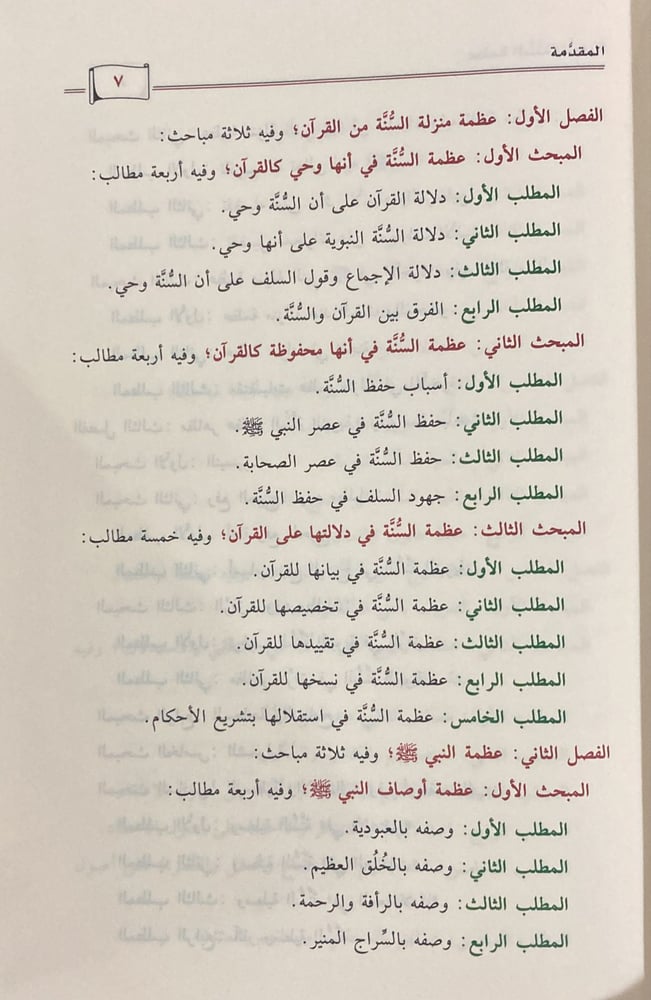 المقدَّمة
٧
الفصل الأول: عظمة منزلة السُّنَّة من القرآن؛ وفيه ثلاثة مباحث:
المبحث الأول: عظمة السُّنَّة في أنها وحي كالقرآن؛ وفيه أربعة مطالب:
المطلب الأول: دلالة القرآن على أن السُّنَّة وحي.
المطلب الثاني: دلالة السُّنَّة النبوية على أنها وحي.
المطلب الثالث: دلالة الإجماع وقول السلف على أن السُّنَّة وحي.
المطلب الرابع: الفرق بين القرآن والسُّنَّة.
المبحث الثاني: عظمة السُّنَّة في أنها محفوظة كالقرآن؛ وفيه أربعة مطالب:
المطلب الأول: أسباب حفظ السُّنَّة.
المطلب الثاني: حفظ السُّنَّة في عصر النبي ﷺ.
المطلب الثالث: حفظ السُّنَّة في عصر الصحابة.
المطلب الرابع: جهود السلف في حفظ السُّنَّة.
المبحث الثالث: عظمة السُّنَّة في دلالتها على القرآن؛ وفيه خمسة مطالب:
المطلب الأول: عظمة السُّنَّة في بيانها للقرآن.
المطلب الثاني: عظمة السُّنَّة في تخصيصها للقرآن.
المطلب الثالث: عظمة السُّنَّة في تقييدها للقرآن.
المطلب الرابع: عظمة السُّنَّة في نسخها للقرآن.
المطلب الخامس: عظمة السُّنَّة في استقلالها بتشريع الأحكام.
الفصل الثاني: عظمة النبي ﷺ؛ وفيه ثلاثة مباحث:
المبحث الأول: عظمة أوصاف النبي ﷺ؛ وفيه أربعة مطالب:
المطلب الأول: وصفه بالعبودية.
المطلب الثاني: وصفه بالخُلُق العظيم.
المطلب الثالث: وصفه بالرأفة والرحمة.
المطلب الرابع: وصفه بالسِّراج المنير.